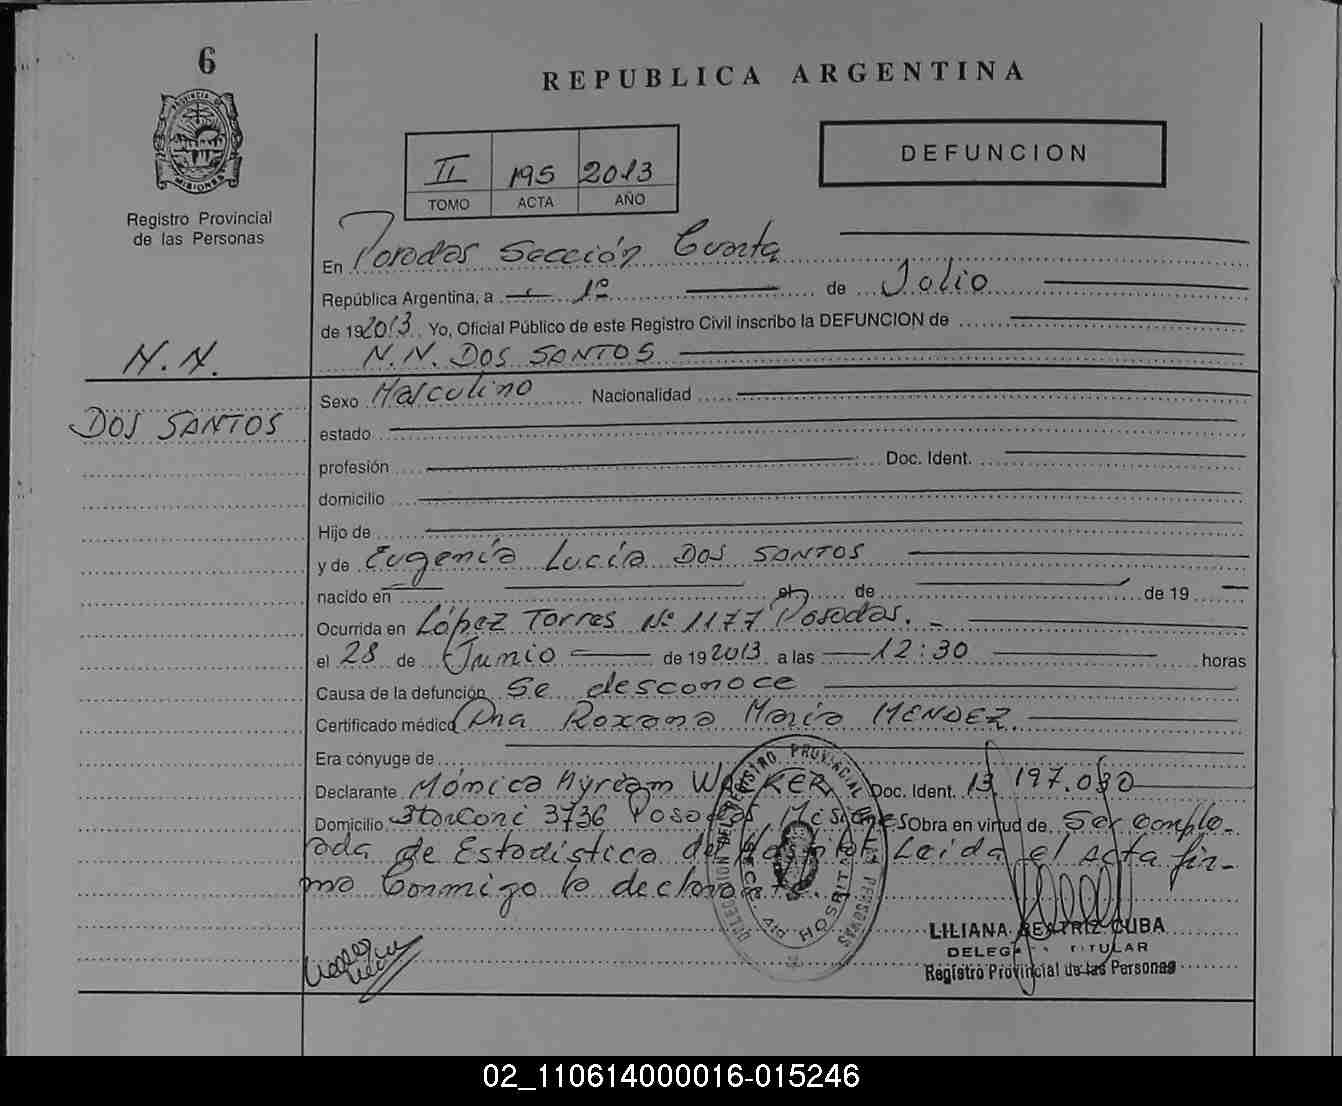 6
REPUBLICA ARGENTINA
PROVINCIA DE
MISIONES
Registro Provincial
de las Personas
II 195 2013
TOMO ACTA AÑO
DEFUNCION
En Posadas Sección Cuarta
República Argentina, a 1º de Julio
de 192013 Yo, Oficial Público de este Registro Civil inscribo la DEFUNCION de
N.N. DOS SANTOS
N.N.
DOS SANTOS
Sexo Masculino Nacionalidad
estado
profesión Doc. Ident.
domicilio
Hijo de
y de Eugenia Lucía DOS SANTOS
nacido en el de de 19
Ocurrida en López Torres Nº 1177 Posadas.
el 28 de Junio de 192013 a las 12:30 horas
Causa de la defunción Se desconoce
Certificado médico Dra Roxana María MENDEZ.
Era cónyuge de
Declarante Mónica Myream WALKER Doc. Ident. 13.197.030
Domicilio 3736 Posadas Misiones Obra en virtud de Ser Emplea-
ada de Estadística del Hospital. Leída el Acta fir-
ma Conmigo la declarante.
DELEGACION DEL REGISTRO PROVINCIAL DE LAS PERSONAS
SECC. 4ta HOSPITAL
LILIANA BEATRIZ CUBA
DELEGADA TITULAR
Registro Provincial de las Personas
02_110614000016-015246